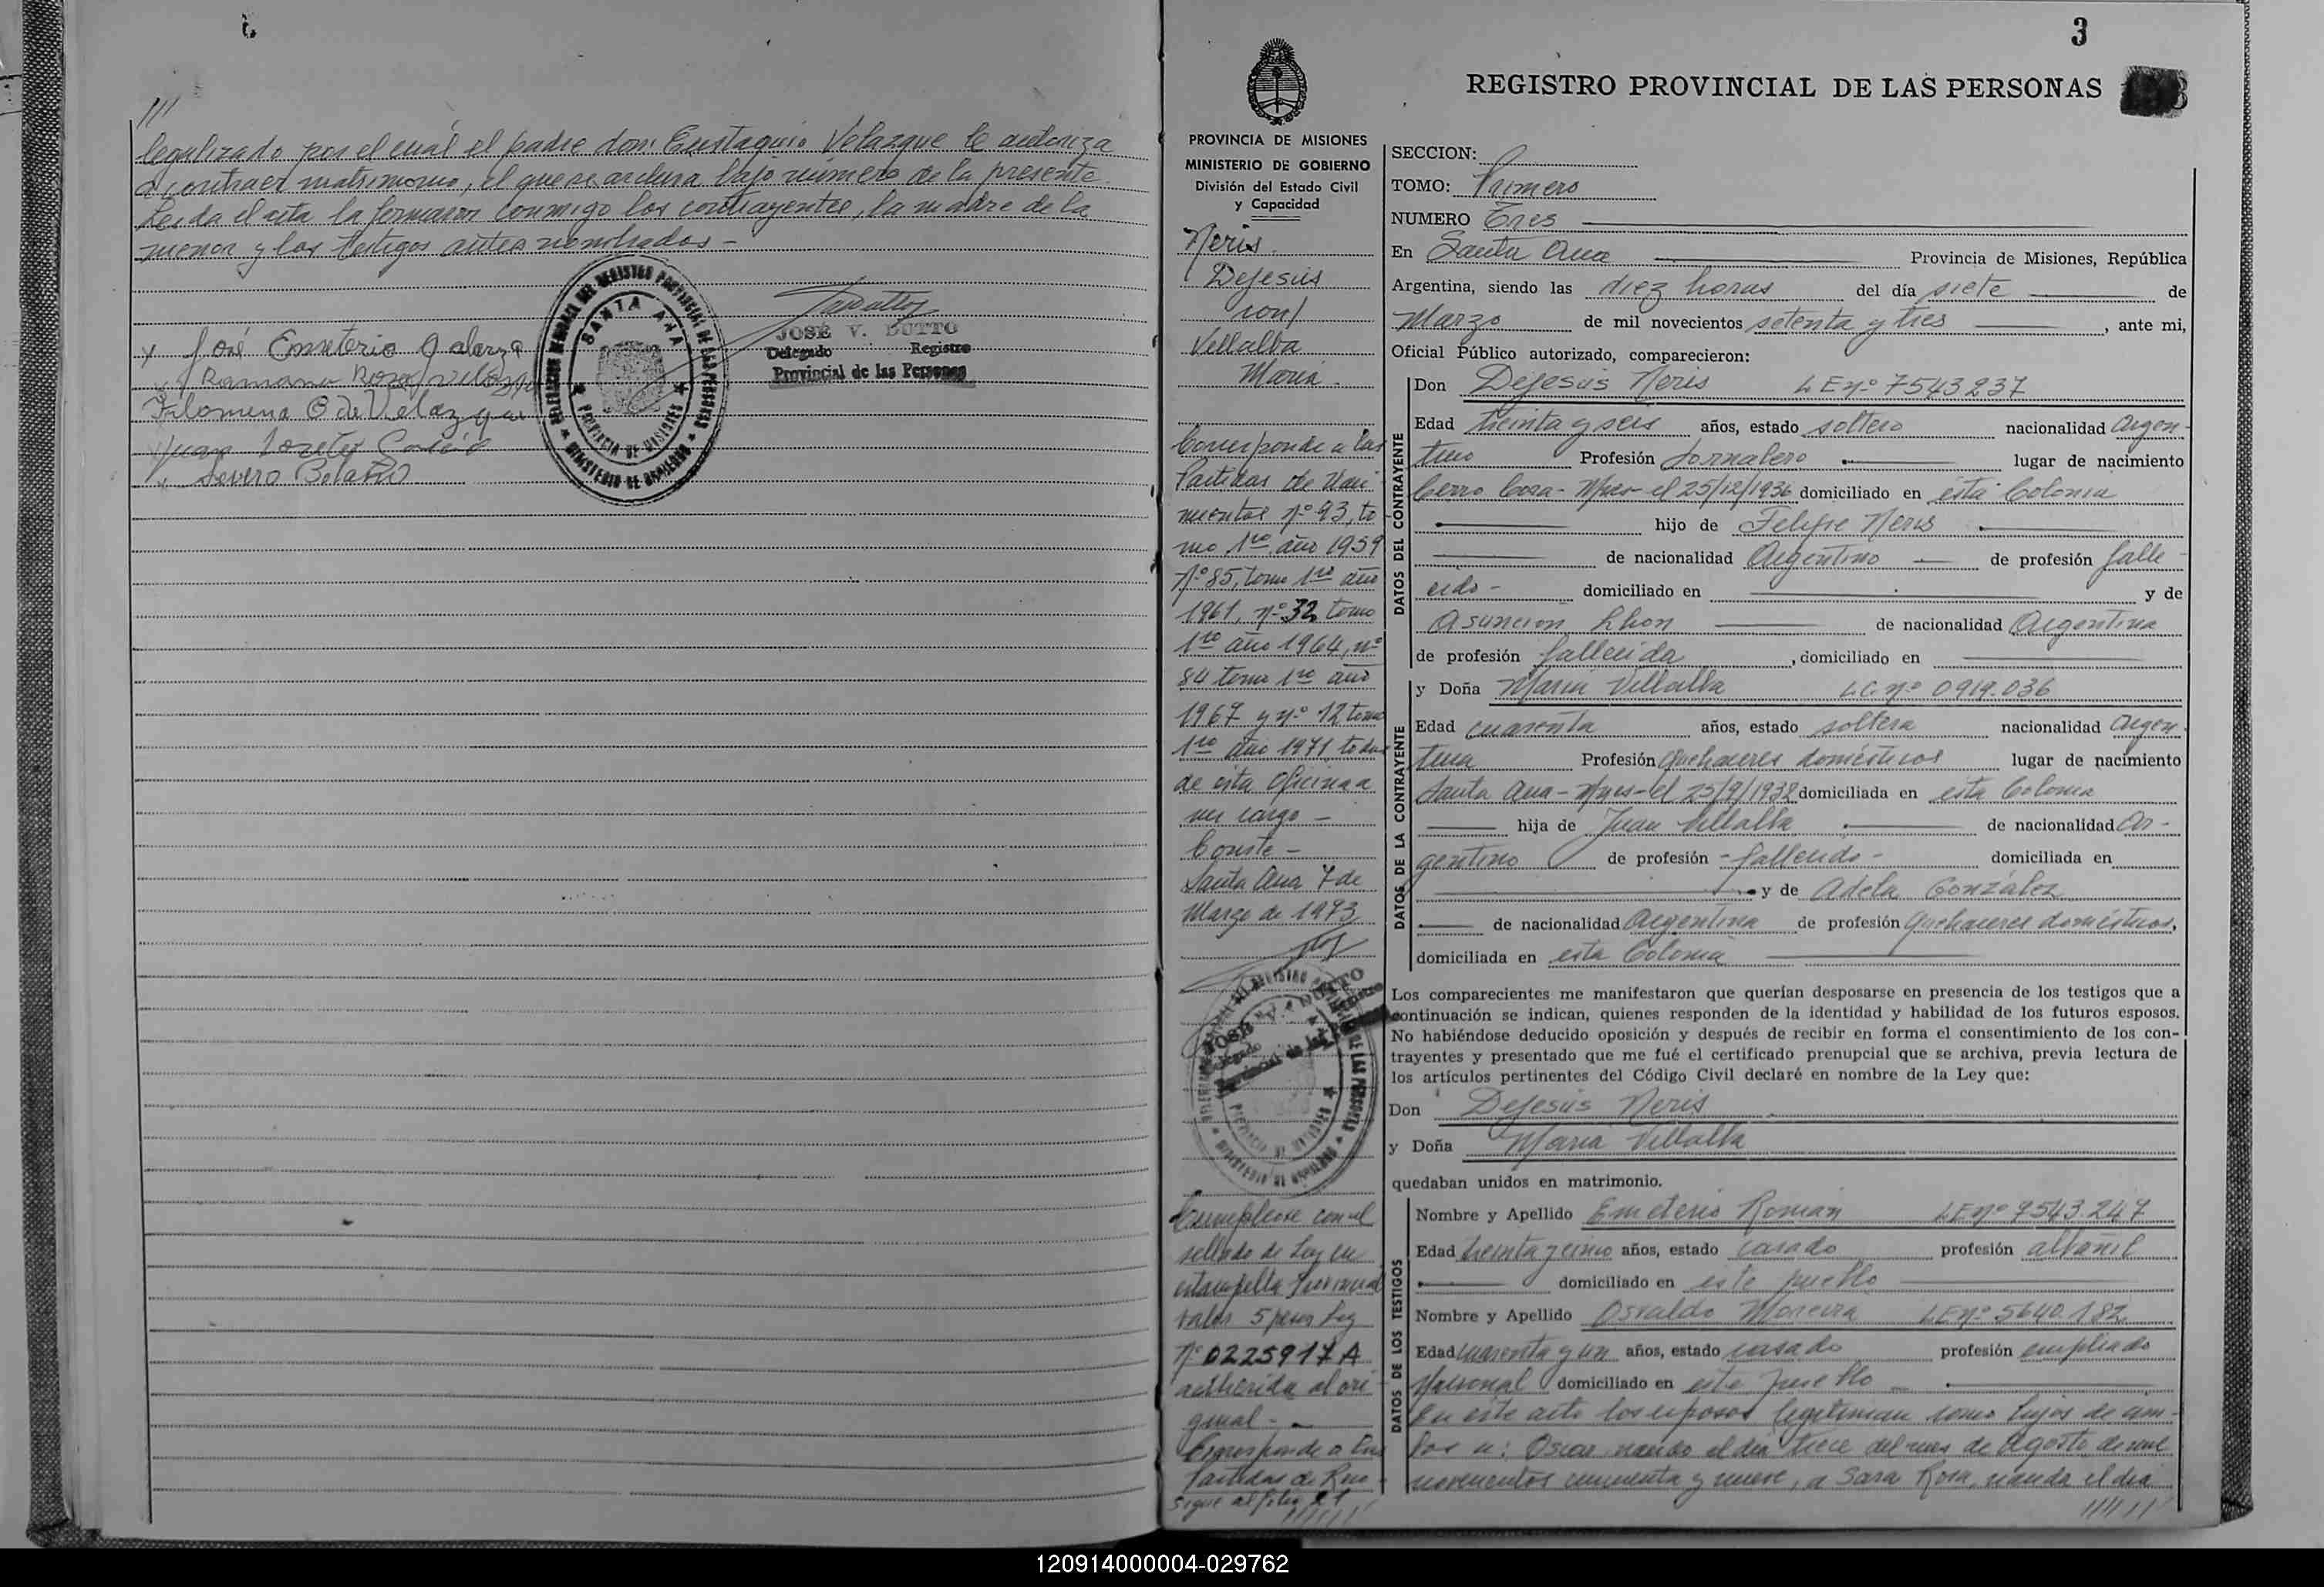 legalizado por el cuál el padre don: Eustaquio Velazque le autoriza
a contraer matrimonio, el que se archiva bajo número de la presente
Leida el acta la firmaron conmigo los contrayentes, la madre de la
menor y los testigos antes nombrados -
SANTA ANA
PROVINCIA DE MISIONES
MINISTERIO DE GOBIERNO
JOSÉ V. DUTTO
Delegado Registro
Provincial de las Personas
x José Emeterio Galarza
Ramona Rosa Velazque
Filomena G de Velazque
Juan
x Severo Bolaño
3
REGISTRO PROVINCIAL DE LAS PERSONAS
PROVINCIA DE MISIONES
MINISTERIO DE GOBIERNO
División del Estado Civil
y Capacidad
Neris
Dejesús
con/
Villalba
María.
Corresponde a las
Partidas de Naci-
mientos nº 93, to
mo 1ro año 1959
Nº 85, tomo 1ro año
1961, nº 32 tomo
1ro año 1964, nº
84 tomo 1ro año
1967 y nº 12 tomo
1ro año 1971 todas
de esta Oficina a
mi cargo -
Conste -
Santa Ana 7 de
Marzo de 1973
Cumplese con el
sellado de Ley en
estampilla Provincial
valor 5 pesos Ley
Nº 0225917 A
adherida al ori-
ginal -
Corresponde a las
Partidas de Reco-
sigue al folio 21
//////
SECCION:
TOMO: Primero
NUMERO Tres
En Santa Ana Provincia de Misiones, República
Argentina, siendo las diez horas del día siete de
Marzo de mil novecientos setenta y tres, ante mi,
Oficial Público autorizado, comparecieron:
DATOS DEL CONTRAYENTE
Don Dejesús Neris L E nº 7543237
Edad treinta y seis años, estado soltero nacionalidad Argen-
tino Profesión Jornalero lugar de nacimiento
Cerro Cora - Mnes - el 25/12/1936 domiciliado en esta Colonia
hijo de Felipe Neris
de nacionalidad Argentino de profesión falle-
cido - domiciliado en y de
Asunción Lhon de nacionalidad Argentina
de profesión fallecida, domiciliado en
DATOS DE LA CONTRAYENTE
y Doña María Villalba L.C. nº 0919.036
Edad cuarenta años, estado soltera nacionalidad Argen-
tina Profesión Quehaceres domésticos lugar de nacimiento
Santa Ana - Mnes - el 25/9/1932 domiciliada en esta Colonia
hija de Juan Villalba de nacionalidad Ar-
gentino de profesión - fallecido - domiciliada en
y de Adela González
de nacionalidad Argentina de profesión Quehaceres domésticos,
domiciliada en esta Colonia
Los comparecientes me manifestaron que querían desposarse en presencia de los testigos que a
continuación se indican, quienes responden de la identidad y habilidad de los futuros esposos.
No habiéndose deducido oposición y después de recibir en forma el consentimiento de los con-
trayentes y presentado que me fué el certificado prenupcial que se archiva, previa lectura de
los artículos pertinentes del Código Civil declaré en nombre de la Ley que:
Don Dejesús Neris
y Doña María Villalba
quedaban unidos en matrimonio.
DATOS DE LOS TESTIGOS
Nombre y Apellido Emeterio Román L E nº 7543.247
Edad treinta y cinco años, estado casado profesión albañil
domiciliado en este pueblo
Nombre y Apellido Osvaldo Moreira L E nº 5640.182
Edad cuarenta y un años, estado casado profesión empleado
Nacional domiciliado en este pueblo
En este acto los esposos legitiman como hijos de am-
bos a: Oscar nacido el día trece del mes de Agosto de mil
novecientos cincuenta y nueve, a Sara Rosa, nacida el día
//////
120914000004-029762